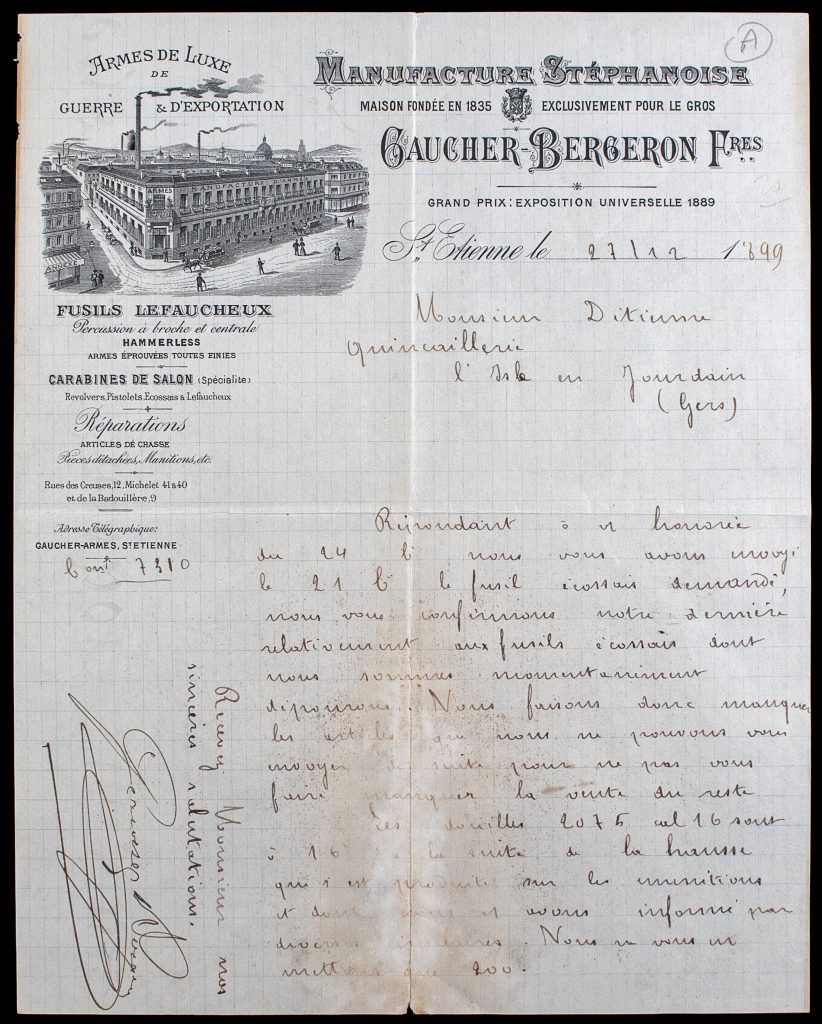 A
ARMES DE LUXE
DE
GUERRE & D'EXPORTATION
ARMES
MANUFACTURE
MANUFACTURE STÉPHANOISE
MAISON FONDÉE EN 1835 EXCLUSIVEMENT POUR LE GROS
GAUCHER-BERGERON FRES
GRAND PRIX: EXPOSITION UNIVERSELLE 1889
St Etienne le 27/12 1899
FUSILS LEFAUCHEUX
Percussion à broche et centrale
HAMMERLESS
ARMES ÉPROUVÉES TOUTES FINIES
CARABINES DE SALON (Spécialite)
Revolvers, Pistolets, Ecossais à Lefaucheux
Réparations
ARTICLES DE CHASSE
Pièces détachées, Munitions, etc.
Rues des Creuses, 12, Michelet 41 & 40
et de la Badouillère, 9
Adresse Télégraphique:
GAUCHER-ARMES, ST ETIENNE
7310
Monsieur Ditienne
Quincaillerie
l'Isle en Jourdain
(Gers)
Répondant à v honorée
du 24 ct nous vous avons envoyé
le 21 ct le fusil écossais demandé,
nous vous confirmons notre dernière
relativement aux fusils écossais dont
nous sommes momentanément
dépourvus. Nous faisons donc manquer
les articles que nous ne pouvons vous
envoyer de suite pour ne pas vous
faire manquer la vente du reste
Les douilles 207 cal 16 sont
à 16 à la suite de la hausse
qui s'est produite sur les munitions
et dont vous avons informé par
diverses circulaires. Nous ne vous en
mettons que 200.
Recevez Monsieur nos
sincères salutations.